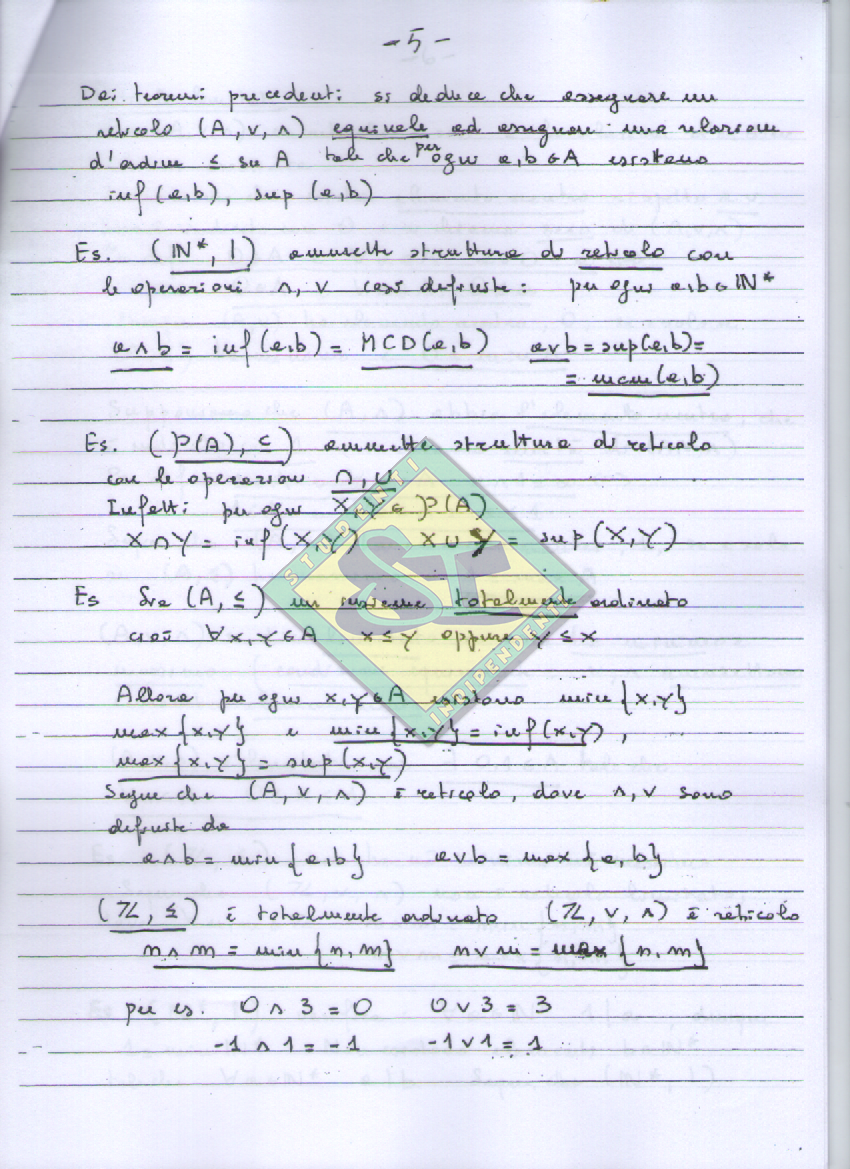 -5-
Dai teoremi precedenti si deduce che assegnare un
reticolo (A, ∨, ∧) equivale ad assegnare una relazione
d'ordine ≤ su A tale che per ogni a,b ∈ A esistano
inf (a,b), sup (a,b)
Es. (ℕ*, |) ammette struttura di reticolo con
le operazioni ∧, ∨ così definite: per ogni a,b ∈ ℕ*
a∧b = inf(a,b) = MCD(a,b) a∨b = sup(a,b) =
= mcm(a,b)
Es. (P(A), ⊆) ammette struttura di reticolo
con le operazioni ∩, ∪
Infatti per ogni X, Y ∈ P(A)
X∩Y = inf (X,Y) X∪Y = sup (X,Y)
Es Sia (A, ≤) un insieme totalmente ordinato
cioè ∀x,y∈A x≤y oppure y≤x
Allora per ogni x,y∈A esistono min {x,y}
max {x,y} e min {x,y} = inf (x,y),
max {x,y} = sup (x,y)
Segue che (A, ∨, ∧) è reticolo, dove ∧,∨ sono
definite da
a∧b = min {a,b} a∨b = max {a,b}
(ℤ, ≤) è totalmente ordinato (ℤ, ∨, ∧) è reticolo
n∧m = min {n,m} n∨m = max {n,m}
per es. 0∧3 = 0 0∨3 = 3
-1∧1 = -1 -1∨1 = 1
STUDENTI
SI
INDIPENDENTI